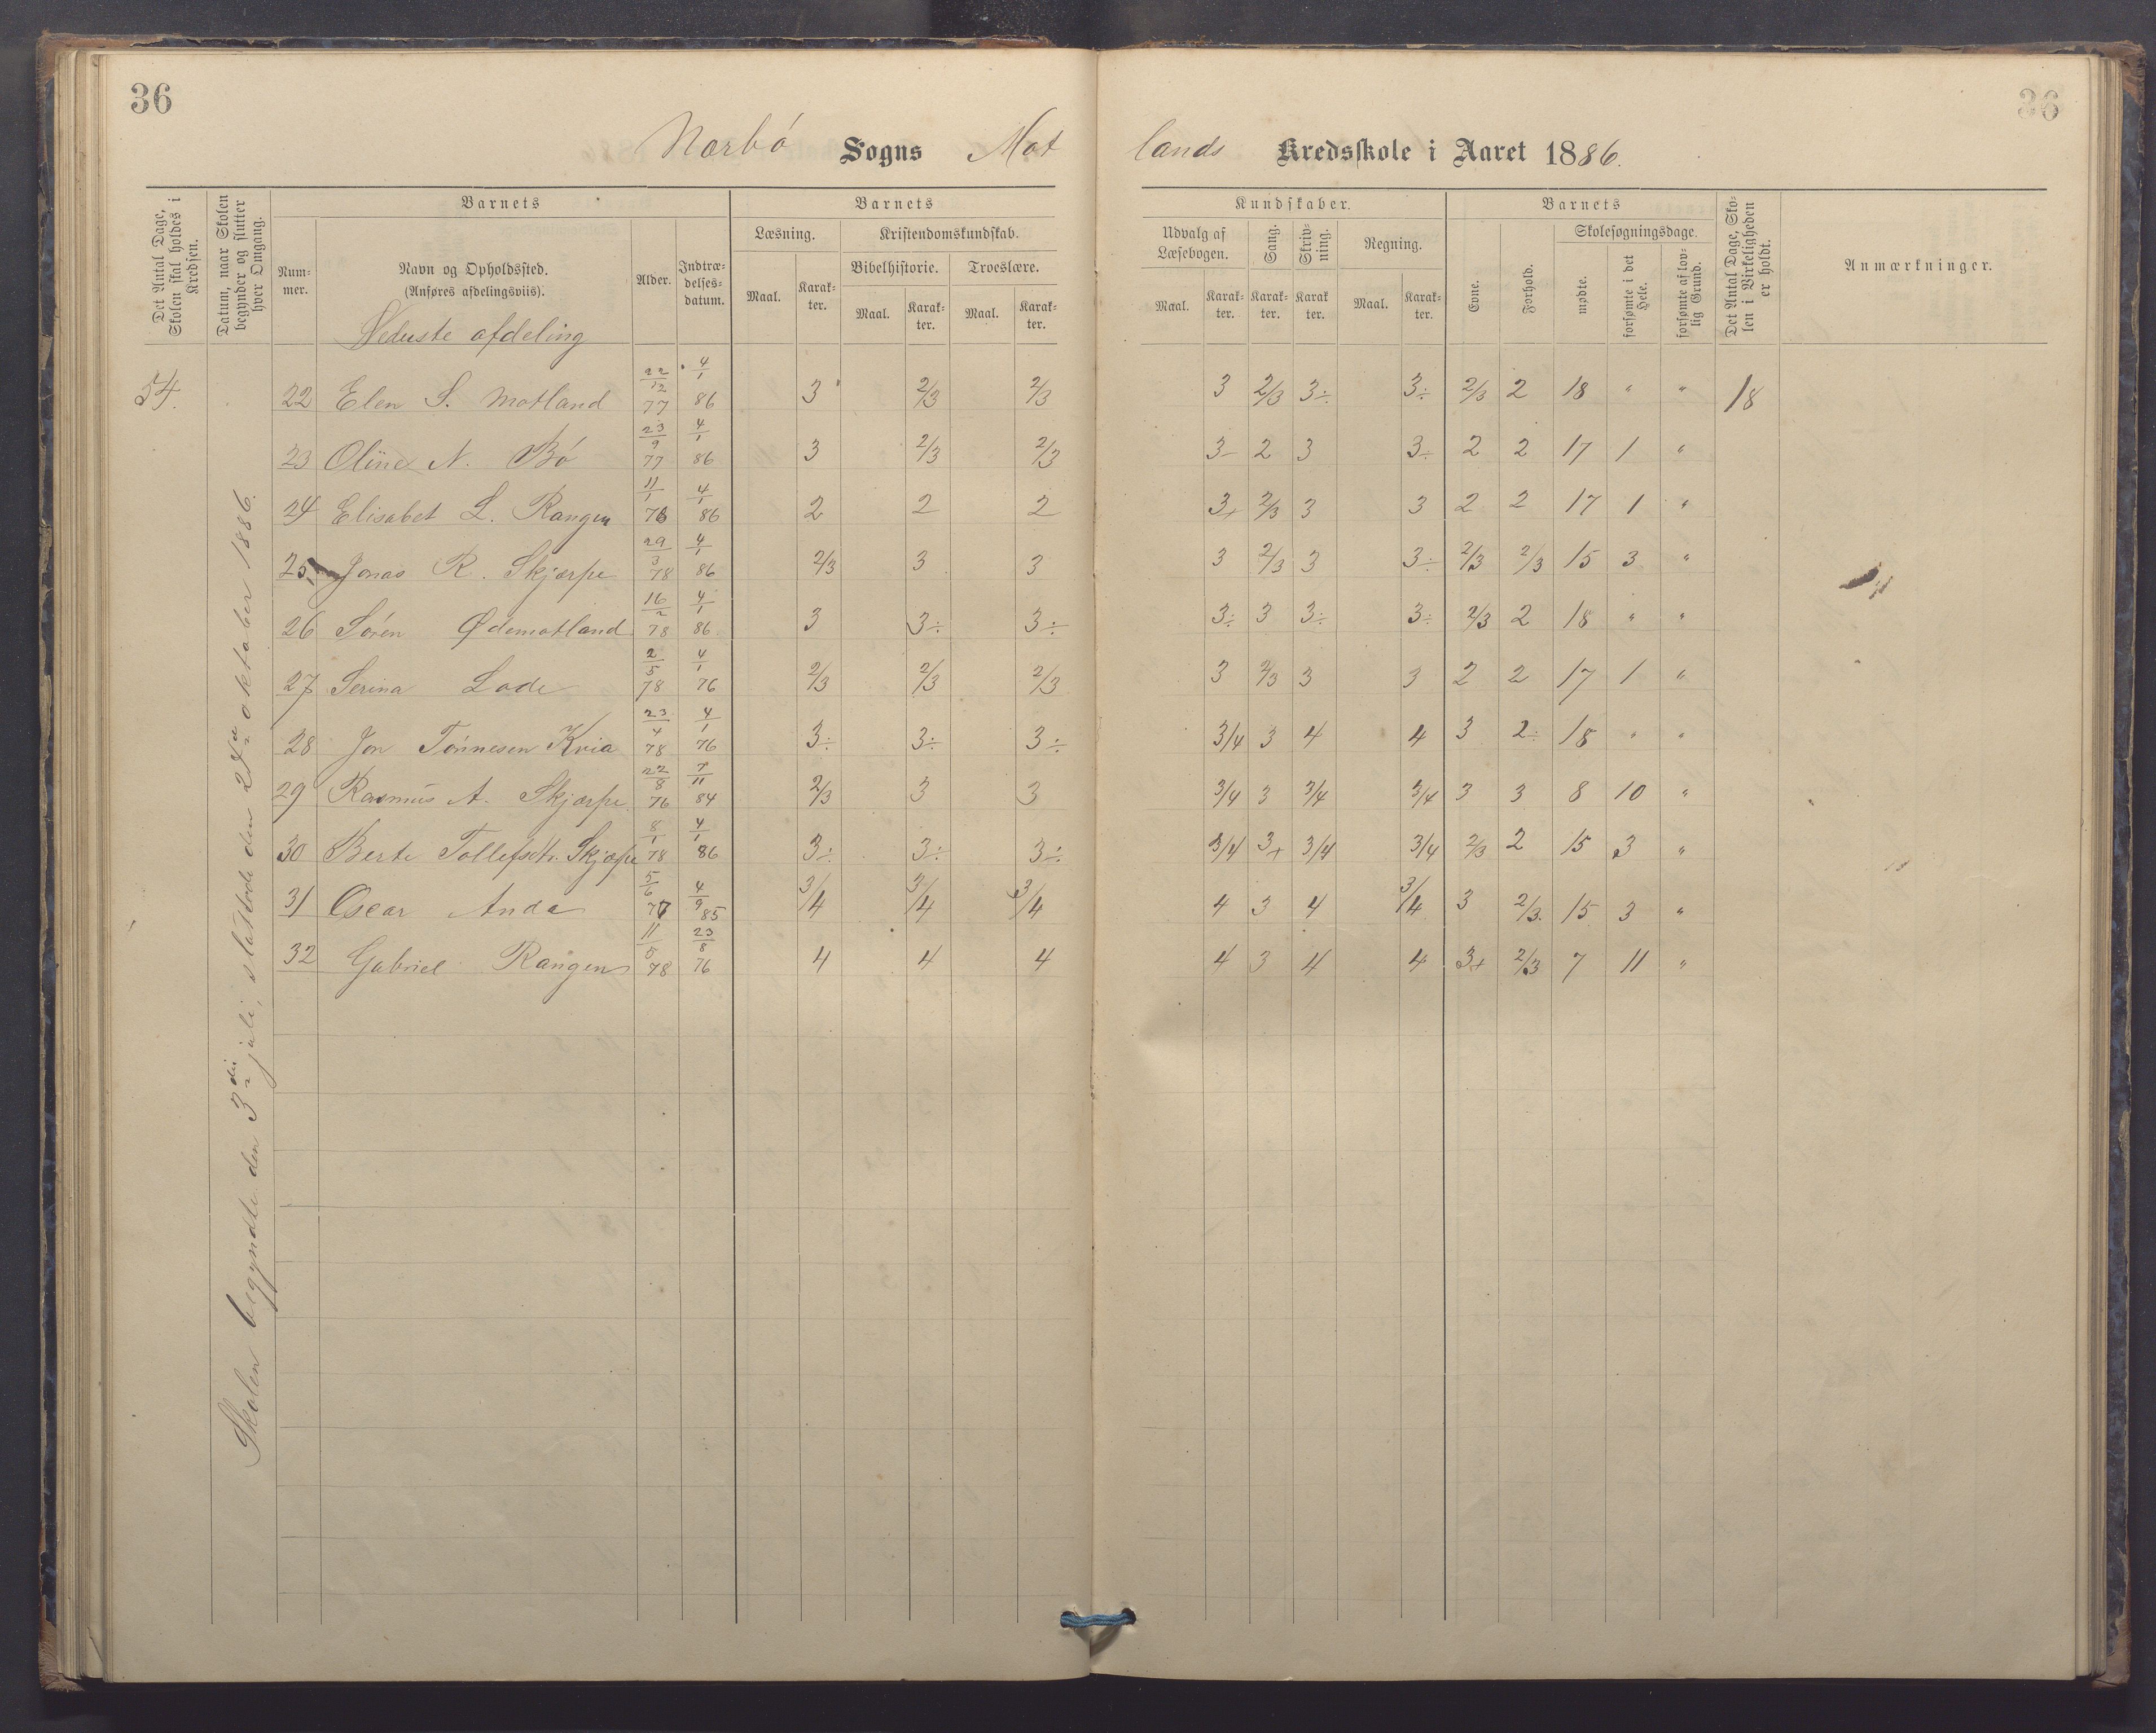 36
36
Nærbø Sogns Mot lands Kredsskole i Aaret 1886.
Det Antal Dage, Skolen skal holdes i Kredsen.
Datum, naar Skolen begynder og slutter hver Omgang.
Barnets
Num-mer.
Navn og Opholdssted.
(Anføres afdelingsviis).
Alder.
Indtræ-delses-datum.
Barnets
Læsning.
Maal.
Karak-ter.
Kristendomskundskab.
Bibelhistorie.
Maal.
Karak-ter.
Troeslære.
Maal.
Karak-ter.
Kundskaber.
Udvalg af Læsebogen.
Maal.
Karak-ter.
Sang.
Karak-ter.
Skriv-ning.
Karak ter.
Regning.
Maal.
Karak-ter.
Barnets
Evne.
Forhold.
Skolesøgningsdage.
mødte.
forsømte i det Hele.
forsømte af lov-lig Grund.
Det Antal Dage, Sko-len i Virkeligheden er holdt.
Anmærkninger.
Nederste afdeling
54. 22 Elen S. Motland 22/12 77 4/1 86 3 2/3 2/3 3 2/3 3÷ 3÷ 2/3 2 18 " " 18
23 Oline N. Bø 23/9 77 4/1 86 3 2/3 2/3 3- 2 3 3÷ 2 2 17 1 "
24 Elisabet L. Rangen 11/1 76 4/1 86 2 2 2 3+ 2/3 3 3 2 2 17 1 "
25 Jonas R. Skjærpe 29/3 78 4/1 86 2/3 3 3 3 2/3 3 3÷ 2/3 2/3 15 3 "
26 Søren Ødemotland 16/2 78 4/1 86 3 3÷ 3÷ 3÷ 3 3÷ 3÷ 2/3 2 18 " "
27 Serina Lode 2/5 78 4/1 76 2/3 2/3 2/3 3 2/3 3 3 2 2 17 1 "
28 Jon Tønnesen Kvia 23/4 78 4/1 76 3÷ 3÷ 3÷ 3/4 3 4 4 3 2÷ 18 " "
29 Rasmus A. Skjærpe 22/8 76 7/11 84 2/3 3 3 3/4 3 3/4 3/4 3 3 8 10 "
30 Berte Tollefsdtr. Skjærpe 8/1 78 4/1 86 3÷ 3÷ 3÷ 3/4 3+ 3/4 3/4 2/3 2 15 3 "
31 Oscar Anda 5/6 77 4/9 85 3/4 3/4 3/4 4 3 4 3/4 3 2/3 15 3 "
32 Gabriel Rangen 11/5 78 23/8 76 4 4 4 4 3 4 4 3+ 2/3 7 11 "
Skolen begyndte den 3die juli, sluttede den 2den oktober 1886.